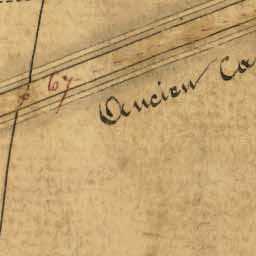 67
Ancien Ca